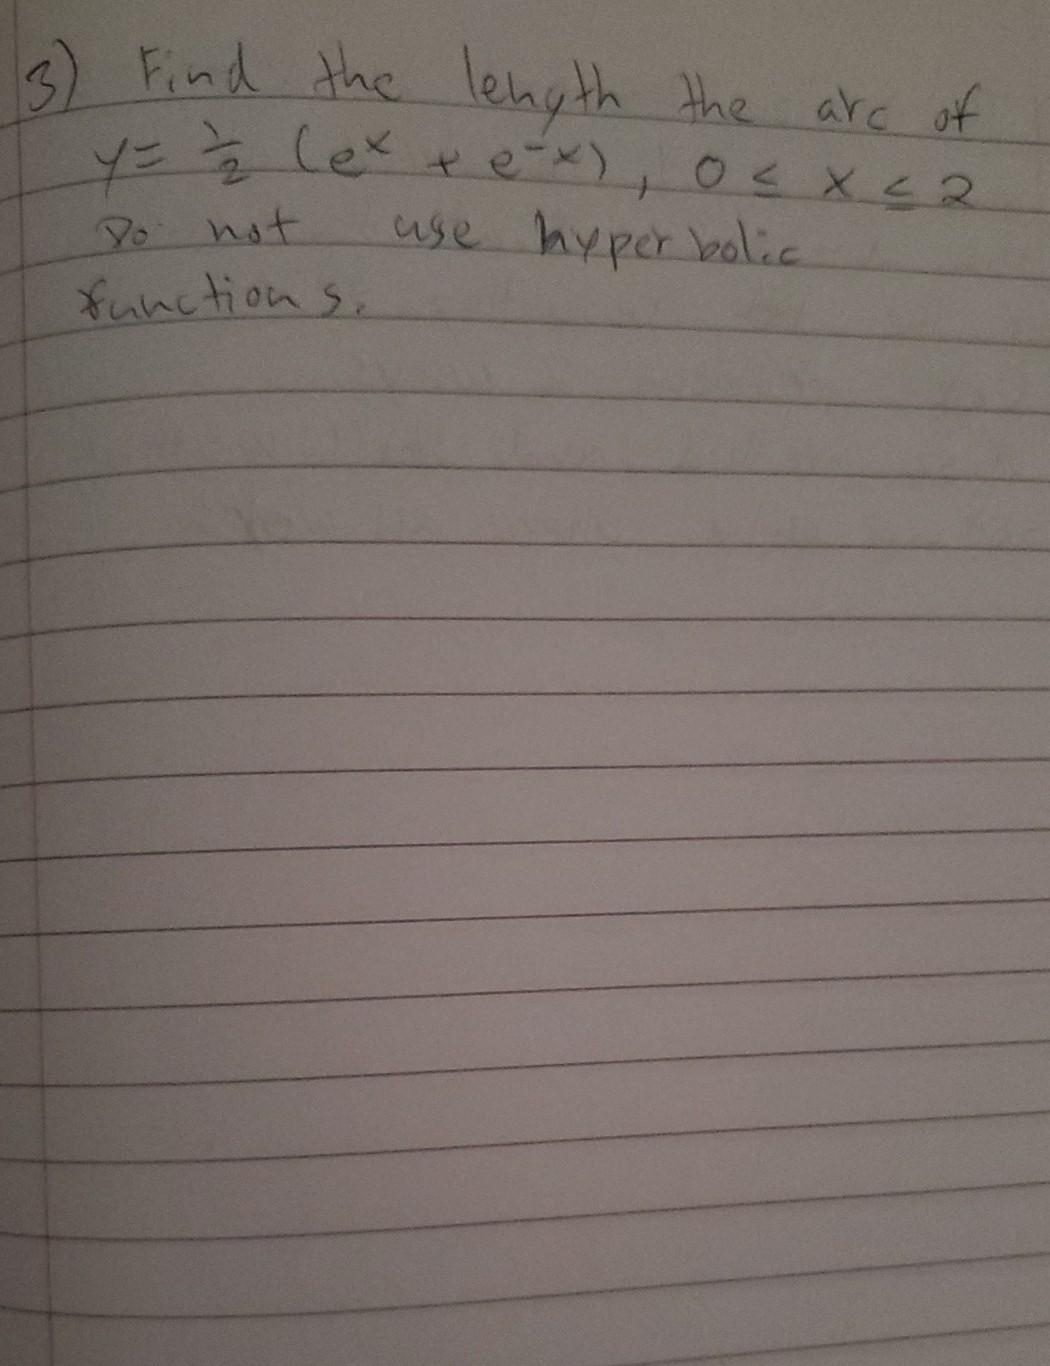 3) Find the length the arc of
y = 1/2 (e^x + e^-x), 0 ≤ x ≤ 2
Do not use hyperbolic
functions.